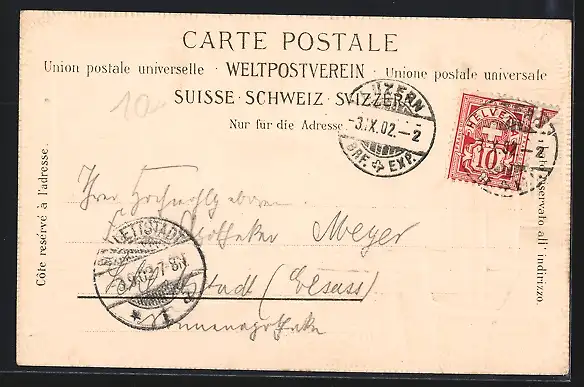 CARTE POSTALE
Union postale universelle · WELTPOSTVEREIN · Unione postale universale
SUISSE · SCHWEIZ · SVIZZERA
Nur für die Adresse.
Côte reservé à l'adresse.
riservato all' indirizzo.
1a
LUZERN
-3.IX.02.-2
BRF. EXP.
HELVETIA
10
Ihrer Hochwohlgeboren
Apotheker Meyer
Schlettstadt (Elsass)
Sonnenapotheke
SCHLETTSTADT
7-8N